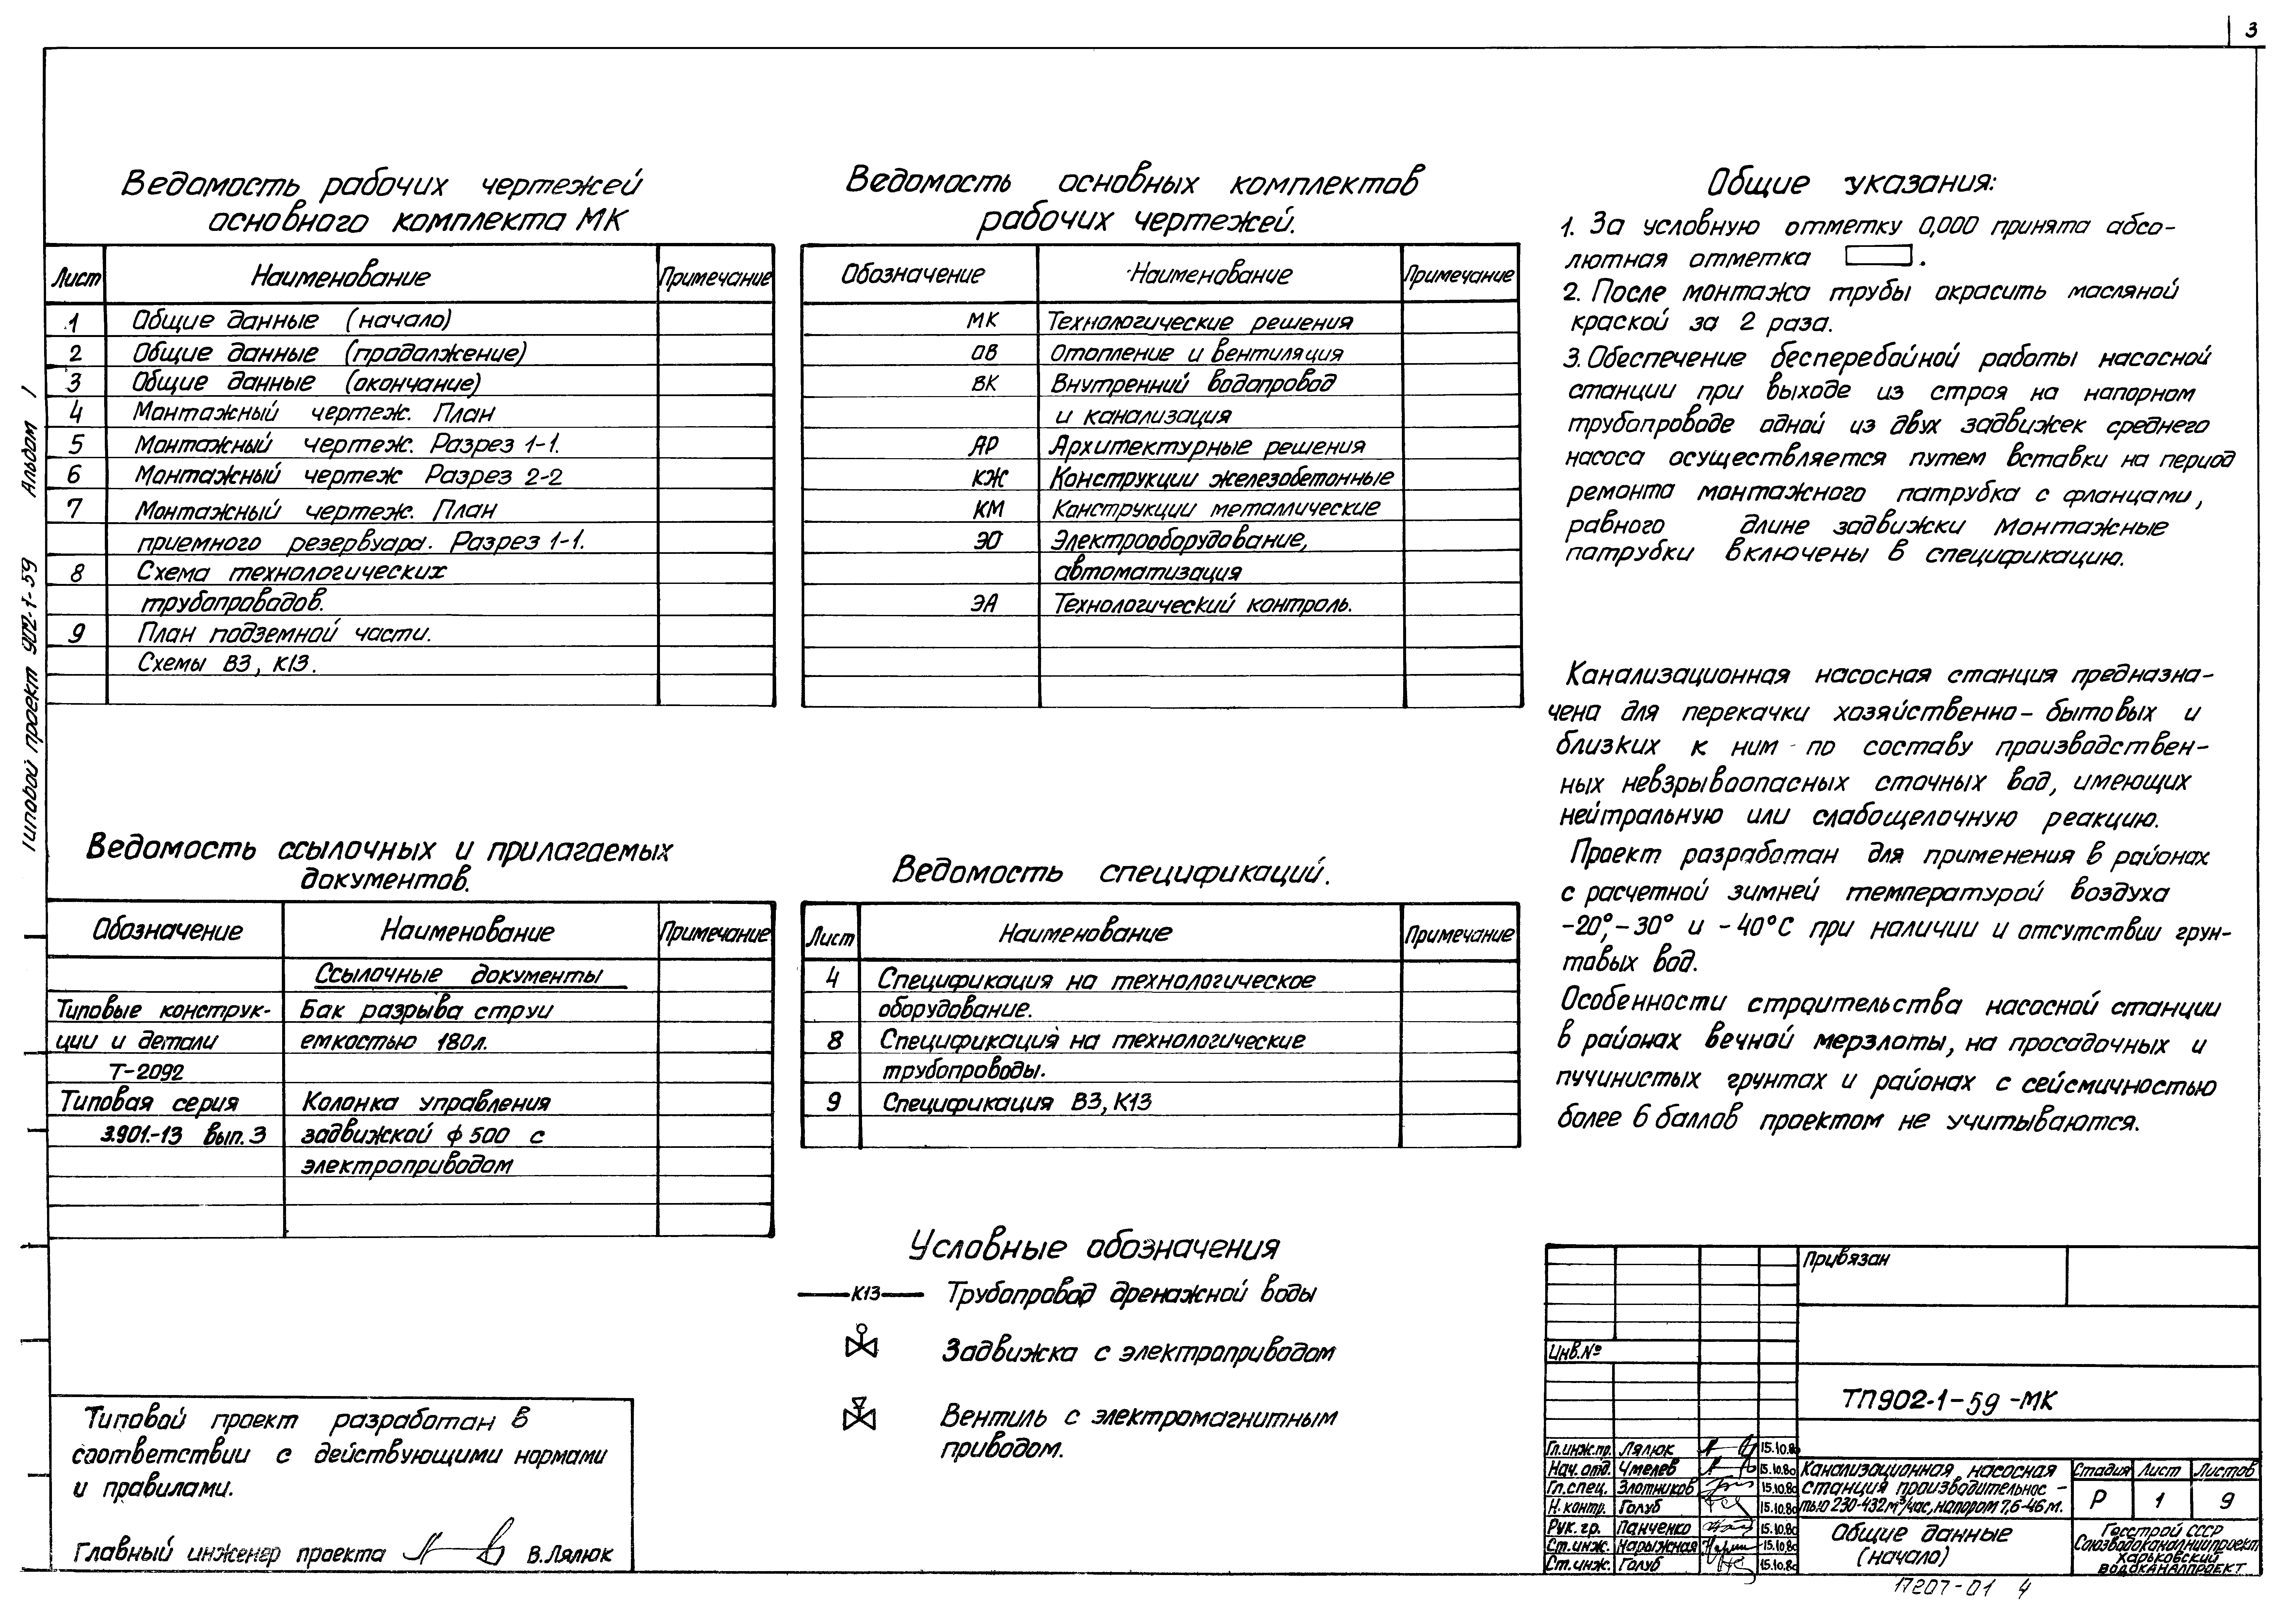 3
Типовой проект 902-1-59 Альбом I
Ведомость рабочих чертежей
основного комплекта МК
Лист Наименование Примечание
1 Общие данные (начало)
2 Общие данные (продолжение)
3 Общие данные (окончание)
4 Монтажный чертеж. План
5 Монтажный чертеж. Разрез 1-1.
6 Монтажный чертеж Разрез 2-2
7 Монтажный чертеж. План
приемного резервуара. Разрез 1-1.
8 Схема технологических
трубопроводов.
9 План подземной части.
Схемы В3, К13.
Ведомость основных комплектов
рабочих чертежей.
Обозначение Наименование Примечание
МК Технологические решения
ОВ Отопление и вентиляция
ВК Внутренний водопровод
и канализация
АР Архитектурные решения
КЖ Конструкции железобетонные
КМ Конструкции металлические
ЭО Электрооборудование,
автоматизация
ЭА Технологический контроль.
Общие указания:
1. За условную отметку 0,000 принята абсо-
лютная отметка .
2. После монтажа трубы окрасить масляной
краской за 2 раза.
3. Обеспечение бесперебойной работы насосной
станции при выходе из строя на напорном
трубопроводе одной из двух задвижек среднего
насоса осуществляется путем вставки на период
ремонта монтажного патрубка с фланцами,
равного длине задвижки Монтажные
патрубки включены в спецификацию.
Канализационная насосная станция предназна-
чена для перекачки хозяйственно-бытовых и
близких к ним по составу производствен-
ных невзрывоопасных сточных вод, имеющих
нейтральную или слабощелочную реакцию.
Проект разработан для применения в районах
с расчетной зимней температурой воздуха
-20°, -30° и -40°С при наличии и отсутствии грун-
товых вод.
Особенности строительства насосной станции
в районах вечной мерзлоты, на просадочных и
пучинистых грунтах и районах с сейсмичностью
более 6 баллов проектом не учитываются.
Ведомость ссылочных и прилагаемых
документов.
Обозначение Наименование Примечание
Ссылочные документы
Типовые конструк- Бак разрыва струи
ции и детали емкостью 180л.
Т-2092
Типовая серия Колонка управления
3.901.-13 вып. 3 задвижкой ф 500 с
электроприводом
Ведомость спецификаций.
Лист Наименование Примечание
4 Спецификация на технологическое
оборудование.
8 Спецификация на технологические
трубопроводы.
9 Спецификация В3, К13
Условные обозначения
К13 Трубопровод дренажной воды
Задвижка с электроприводом
Вентиль с электромагнитным
приводом.
Типовой проект разработан в
соответствии с действующими нормами
и правилами.
Главный инженер проекта В. Лялюк
Привязан
Инв. №
ТП902-1-59-МК
Гл.инж.пр. Лялюк 15.10.80
Нач. отд. Чмелев 15.10.80
Гл.спец. Злотников 15.10.80
Н. контр. Голуб 15.10.80
Рук. гр. Панченко 15.10.80
Ст. инж. Нарыжная 15.10.80
Ст. инж. Голуб 15.10.80
Канализационная насосная
станция производительнос-
тью 230-432 м³/час, напором 7,6-46 м.
Стадия Лист Листов
Р 1 9
Общие данные
(начало)
Госстрой СССР
Союзводоканалниипроект
Харьковский
ВОДОКАНАЛПРОЕКТ
17207-01 4